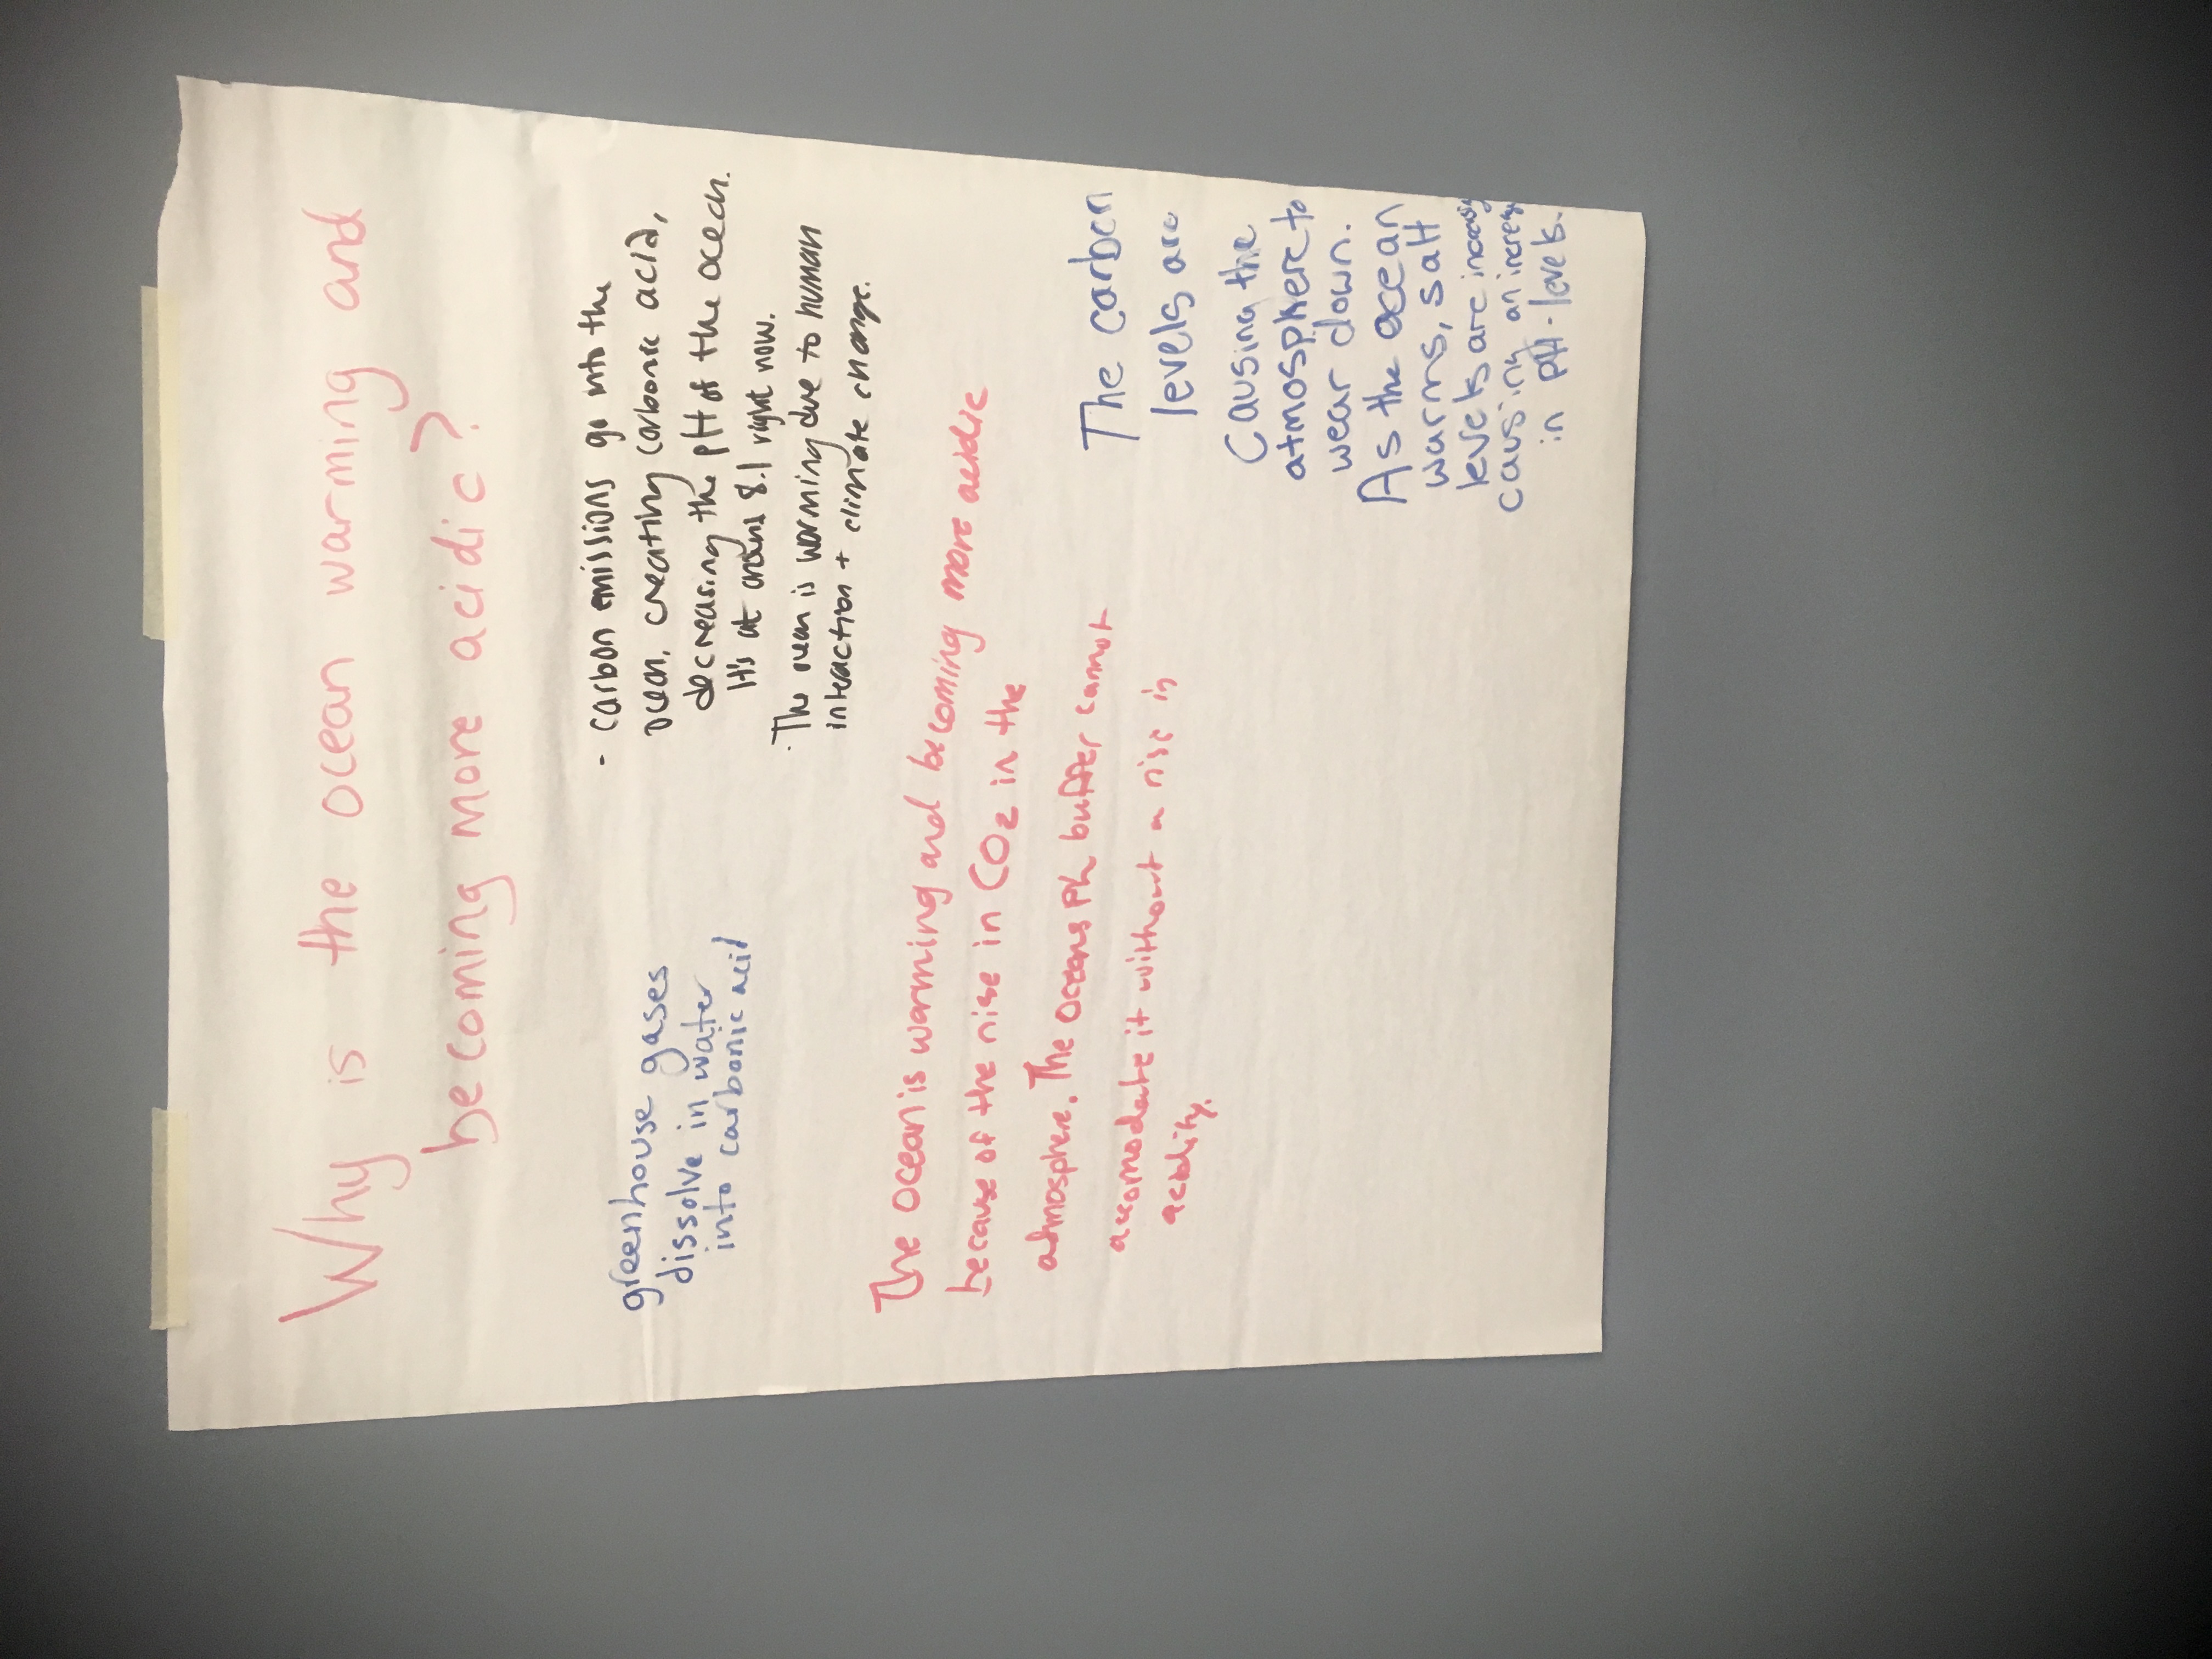 Why is the ocean warming and
becoming more acidic?
greenhouse gases
dissolve in water
into carbonic acid
- carbon emissions go into the
ocean, creating carbonic acid,
decreasing the pH of the ocean.
It's at around 8.1 right now.
· The ocean is warming due to human
interaction + climate change.
The ocean is warming and becoming more acidic
because of the rise in CO2 in the
atmosphere. The oceans Ph buffer cannot
accomodate it without a rise in
acidity.
The carbon
levels are
causing the
atmosphere to
wear down.
As the ocean
warms, salt
levels are increasing
causing an increase
in PH-levels.